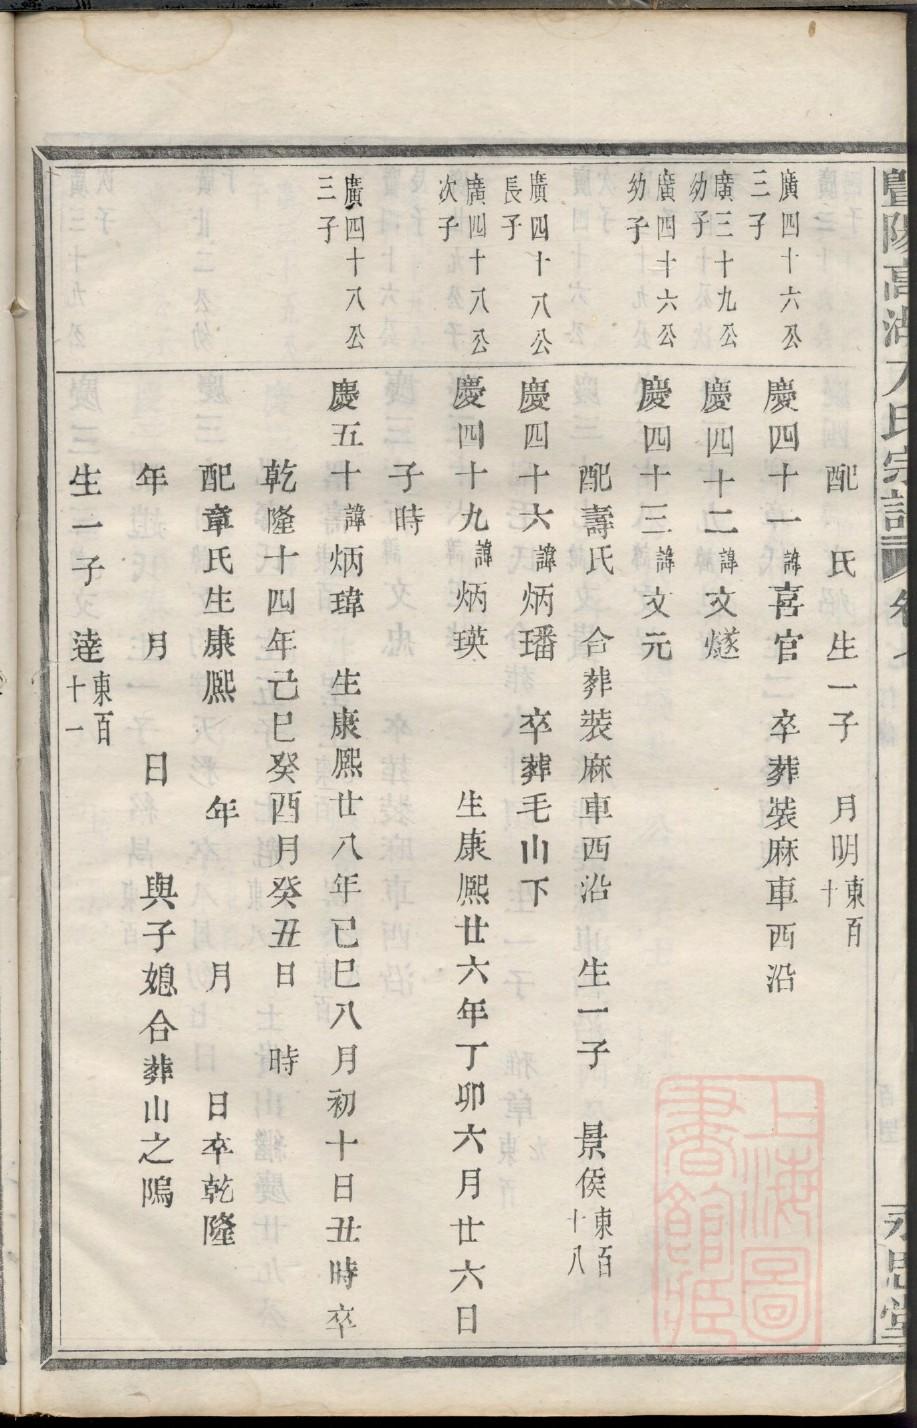 暨陽高湖方氏宗譜 卷七 永思堂
配 氏 生一子 月明東百十
廣四十六公三子
慶四十一諱喜官 卒葬裝麻車西沿
廣三十九公幼子
慶四十二諱文燧
廣四十六公幼子
慶四十三諱文元
配壽氏 合葬裝麻車西沿 生一子 景侯東百十八
廣四十八公長子
慶四十六諱炳璠 卒葬毛山下
廣四十八公次子
慶四十九諱炳瑛 生康熈廿六年丁卯六月廿六日
子時
廣四十八公三子
慶五十諱炳瑋 生康熈廿八年己巳八月初十日丑時卒
乾隆十四年己巳癸酉月癸丑日 時
配章氏生康熈 年 月 日卒乾隆
年 月 日 與子媳合葬山之隖
生一子 逹東百十一
上海圖書館藏